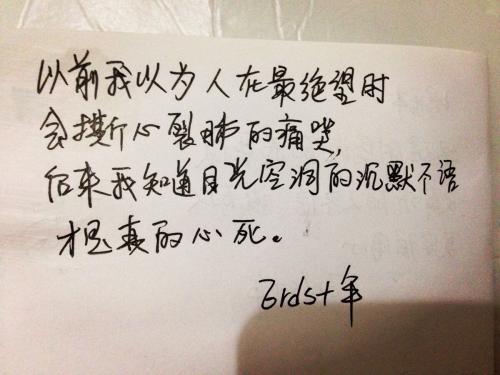 以前我以为人在最绝望时
会撕心裂肺的痛哭,
后来我知道目光空洞的沉默不语
才是真的心死。